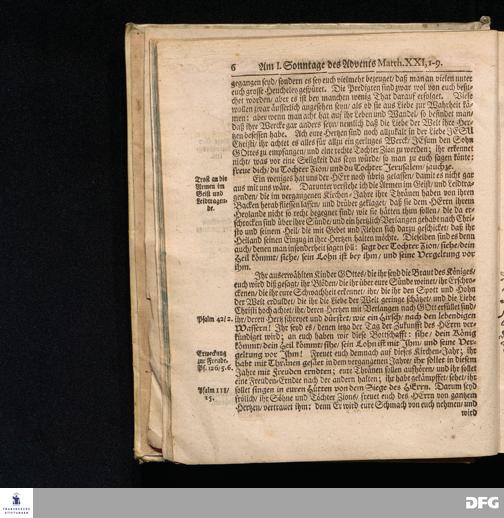 6 Am I. Sonntage des Advents Matth. XXI, 1-9.
gegangen seyd / sondern es sey euch vielmehr bezeuget / daß man an vielen unter
euch grosse Heucheley gespüret. Die Predigten sind zwar wol von euch besu-
chet worden / aber es ist bey manchen wenig That darauf erfolget. Viele
wollen zwar äusserlich angesehen seyn / als ob sie aus Liebe zur Wahrheit kä-
men: aber wenn man acht hat auf ihr Leben und Wandel / so befindet man /
daß ihre Wercke gar anders seyn / nemlich daß die Liebe der Welt ihre Her-
tzen besessen habe. Ach eure Hertzen sind noch allzukalt in der Liebe JESU
Christi / ihr achtet es alles für allzu ein geringes Werck / JEsum den Sohn
GOttes zu empfangen / und eine rechte Tochter Zion zu werden; ihr erkennet
nicht / was vor eine Seligkeit das seyn würde / so man zu euch sagen könte:
freue dich / du Tochter Zion / und du Tochter Jerusalem / jauchze.
Ein weniges hat uns der HErr noch übrig gelassen / damit es nicht gar
aus mit uns wäre. Darunter verstehe ich die Armen im Geist / und Leidtra-
genden / die im vergangenen Kirchen-Jahre ihre Thränen haben von ihren
Backen herab fliessen lassen / und drüber geklaget / daß sie dem HErrn ihrem
Heylande nicht so recht begegnet sind / wie sie hätten thun sollen / die da er-
schrocken sind über ihre Sünde / und ein hertzlich Verlangen gehabt nach Chri-
sto und seinem Heil / die mit Gebet und Flehen sich darzu geschicket / daß ihr
Heyland seinen Einzug in ihre Hertzen halten möchte. Dieselben sind es denn
auch / denen man insonderheit sagen soll: saget der Tochter Zion / siehe / dein
Heil kömmt / siehe / sein Lohn ist bey ihm / und seine Vergeltung vor
ihm.
Trost an die
Armen im
Geist und
Leidtragen-
de.
Ihr auserwählten Kinder GOttes / die ihr seyd die Braut des Königes /
euch wird diß gesagt / ihr Blöden / die ihr über eure Sünde weinet / ihr Erschro-
ckenen / die ihr eure Schwachheit erkennet / ihr / die ihr den Spott und Hohn
der Welt erduldet / die ihr die Liebe der Welt geringe schätzet / und die Liebe
Christi hoch achtet / ihr / deren Hertzen mit Verlangen nach GOtt erfüllet sind /
ihr / deren Hertz schreyet und dürstet / wie ein Hirsch / nach den lebendigen
Wassern! Ihr seyd es / denen ietzo der Tag der Zukunfft des HErrn ver-
kündiget wird; an euch haben wir diese Bottschafft: sihe / dein König
kömmt / dein Heil kömmt / sihe / sein Lohn ist mit Ihm / und seine Ver-
geltung vor Ihm! Freuet euch demnach auf dieses Kirchen-Jahr; ihr
habt mit Thränen gesäet in dem vergangenen Jahre / ihr sollet in diesem
Jahre mit Freuden erndten; eure Thränen sollen aufhören / und ihr sollet
eine Freuden-Erndte nach der andern halten; ihr habt gekämpffet / sehet / ihr
sollet singen in euren Hütten von dem Siege des HErrn. Darum seyd
frölich / ihr Söhne und Töchter Zions / freuet euch des HErrn von gantzem
Hertzen / vertrauet ihm; denn Er wird eure Schmach von euch nehmen / und
wird
Psalm 42/2.
Erweckung
zur Freude.
Ps. 126/5.6.
Psalm 118/
15.
DFG